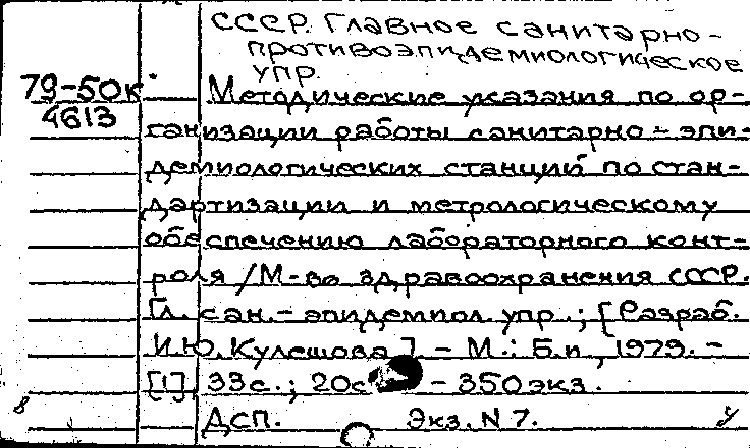 СССР. Главное санитарно-
противоэпидемиологическое
упр.
79-50к
4613
Методические указания по ор-
ганизации работы санитарно-эпи-
демиологических станций по стан-
дартизации и метрологическому
обеспечению лабораторного конт-
роля / М-во здравоохранения СССР.
Гл. сан.-эпидемиол. упр.; [Разраб.
И.Ю. Кулешова]. - М.: Б.и, 1979. -
[1], 33с.; 20с - 350 экз.
ДСП. Экз. N 7.
8
у